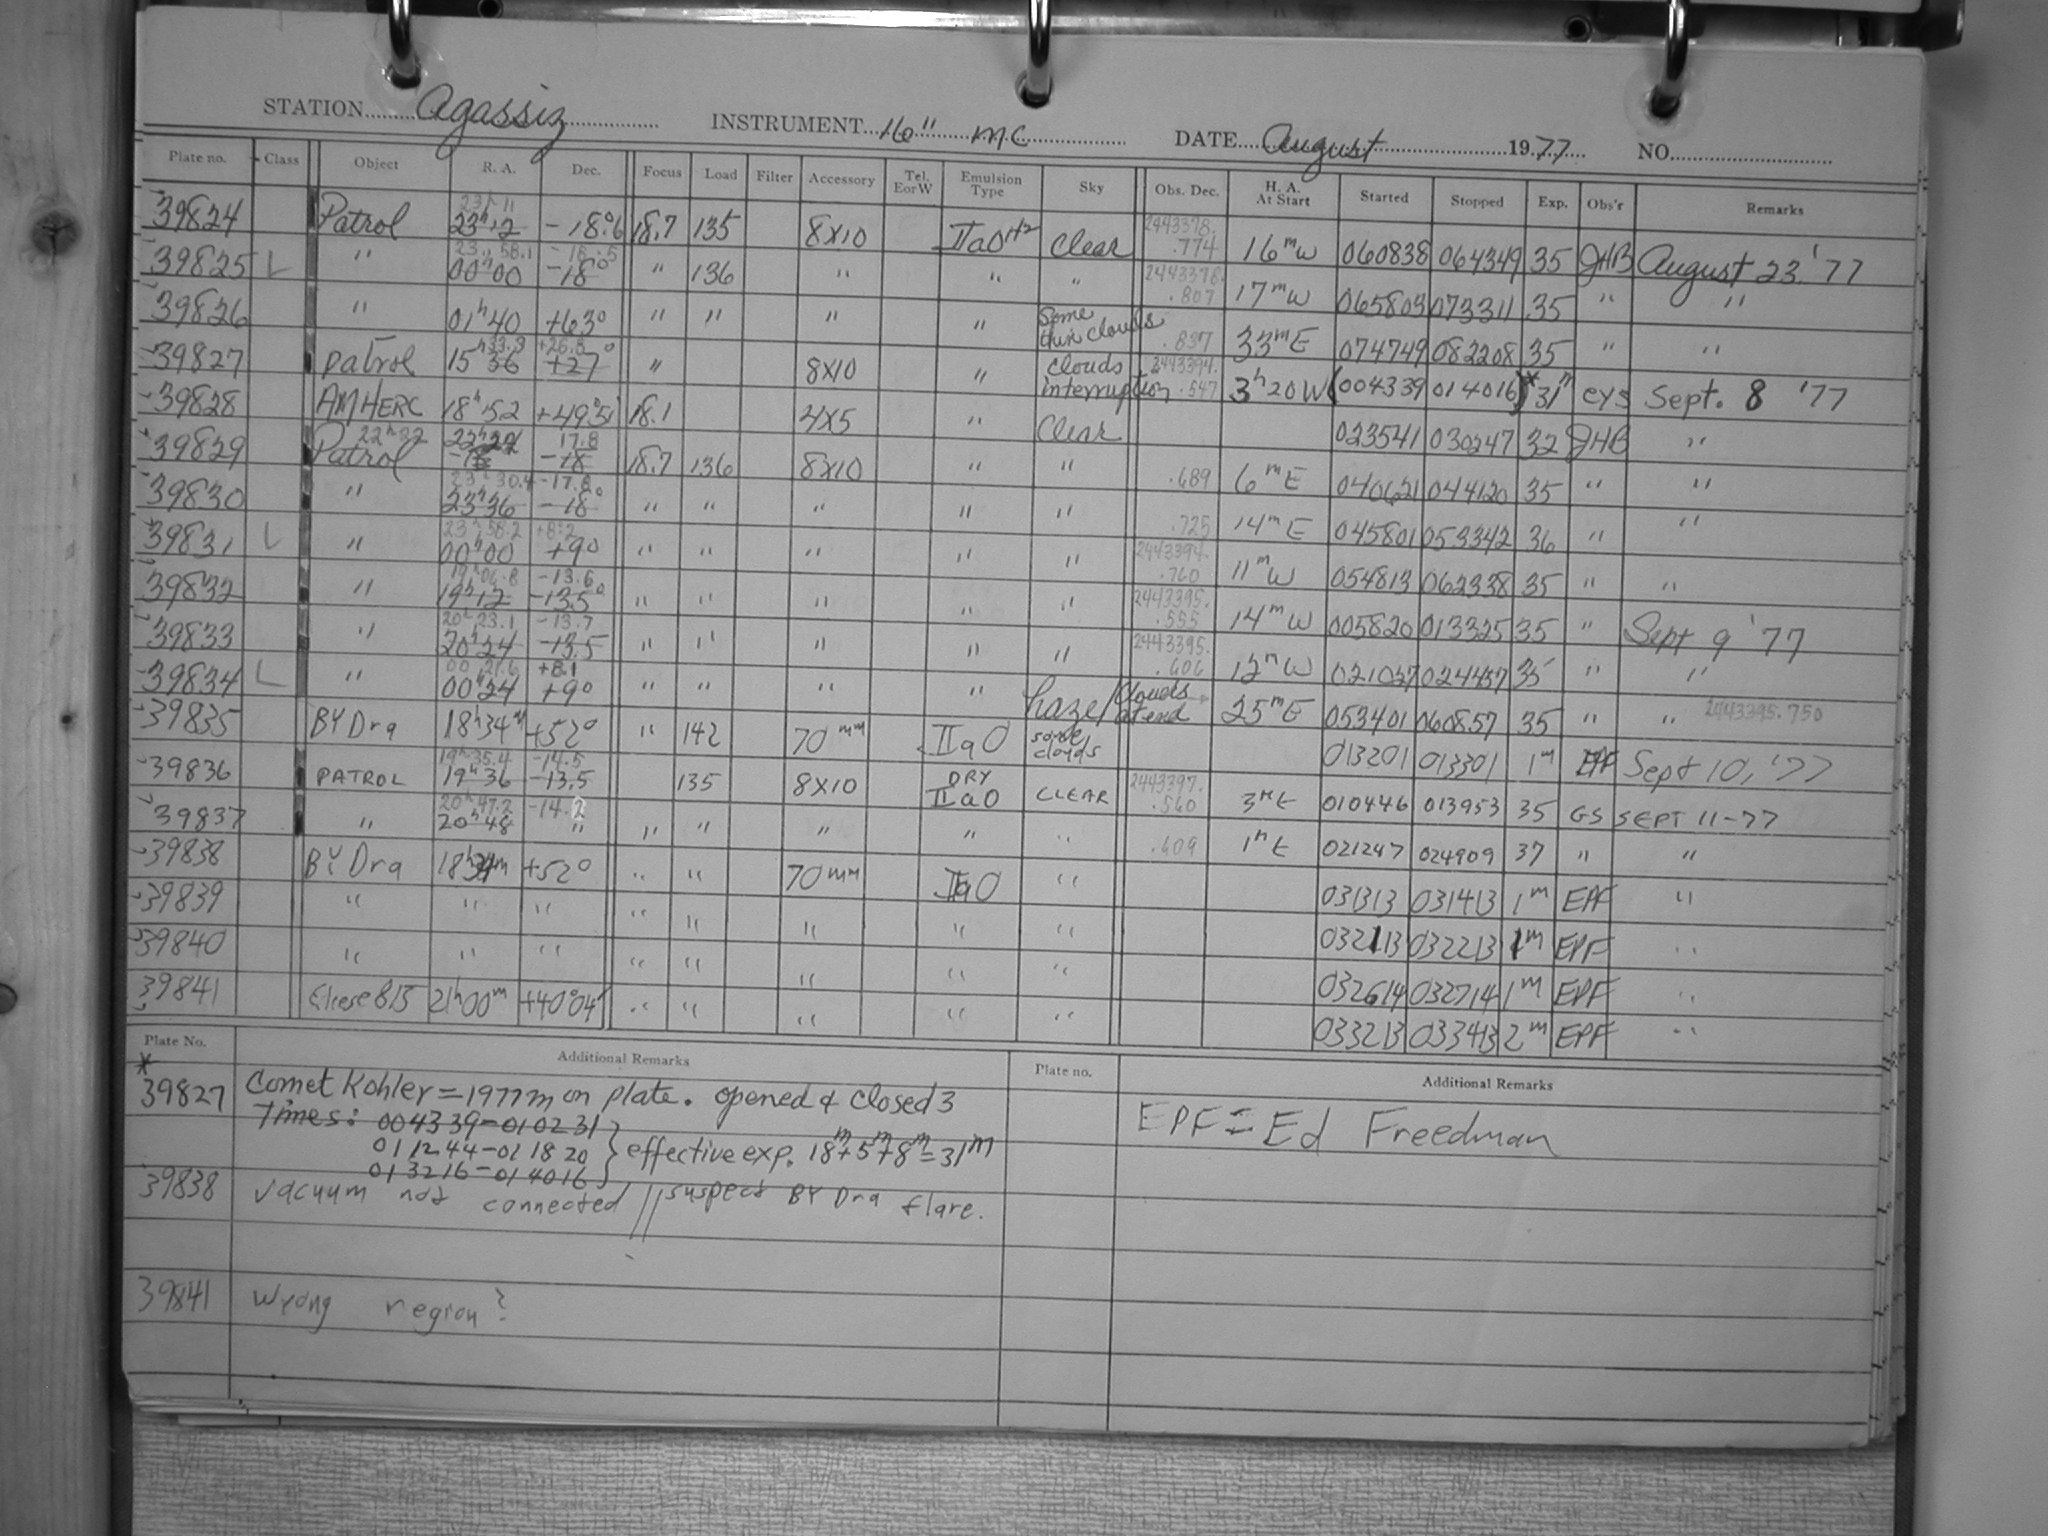 STATION Agassiz INSTRUMENT 16" MC DATE August 1977 NO.
Plate no. Class Object R. A. Dec. Focus Load Filter Accessory Tel. E or W Emulsion Type Sky Obs. Dec. H. A. At Start Started Stopped Exp. Obs'r Remarks
23h 11 2443378.
39824 Patrol 23h12 -18.°6 18.7 135 8x10 IIaO H2 Clear .774 16m W 060838 064349 35 JHB August 23 '77
23 58.1 -18.5 2443378.
39825 L " 00h00 -18° " 136 " " " .807 17m W 065803 073311 35 " "
39826 " 01h40 +63° " " " " Some thin clouds .837 33m E 074749 082208 35 " "
15h33.3 +26.8 2443394.
39827 patrol 15 36 +27° " 8x10 " clouds interruption .547 3h20 W (004339 014016)* 31m CYS Sept. 8 '77
39828 AM HERC 18h52 +49°51' 18.1 4x5 " Clear 023541 030247 32 JHB "
22h22 17.8
39829 Patrol -18 18.7 136 8x10 " " .689 6m E 040621 044120 35 " "
23h30.4 -17.8
39830 " 23h36 -18° " " " " " .725 14m E 045801 053342 36 " "
23h58.2 +8.2 2443394.
39831 L " 00h00 +9° " " " " " .760 11m W 054813 062338 35 " "
19h06.8 -13.6 2443395.
39832 " 19h12 -13.5° " " " " " .555 14m W 005820 013325 35 " Sept 9 '77
20h23.1 -13.7 2443395.
39833 " 20h24 -13.5 " " " " " .606 12m W 021037 024437 35 " "
00 21.6 +8.1
39834 L " 00h24 +9° " " " " haze/clouds at end 25m E 053401 060857 35 " " 2443395.750
39835 BY Dra 18h34m +52° " 142 70 mm IIaO some clouds 013201 013301 1m EPF Sept 10, '77
19h35.4 -14.5 2443397.
39836 PATROL 19h36 -13.5 135 8x10 DRY IIaO CLEAR .560 3m E 010446 013953 35 GS SEPT 11-77
20h47.2 -14.2
39837 " 20h48 " " " " " " .609 1m E 021247 024909 37 " "
39838 BY Dra 18h34m +52° " " 70mm IIaO " 031313 031413 1m EPF "
39839 " " " " " " " " 032113 032213 1m EPF "
39840 " " " " " " " " 032614 032714 1m EPF "
39841 21h00m +40°04' " " " " " 033213 033413 2m EPF "
Plate No. Additional Remarks Plate no. Additional Remarks
*
39827 Comet Kohler = 1977m on plate. opened & closed 3
Times: 004339-010231
011244-011820 } effective exp. 18m+5m+8m=31m
013216-014016
39838 vacuum not connected // suspect BY Dra flare.
39841 wrong region?
EPF = Ed Freedman